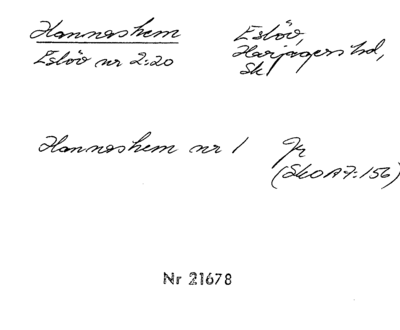 Hanneshem
Eslöv nr 2:20
Eslöv,
Harjagers hd,
Sk
Hanneshem nr 1
Jr
(SkOA7:156)
Nr 21678